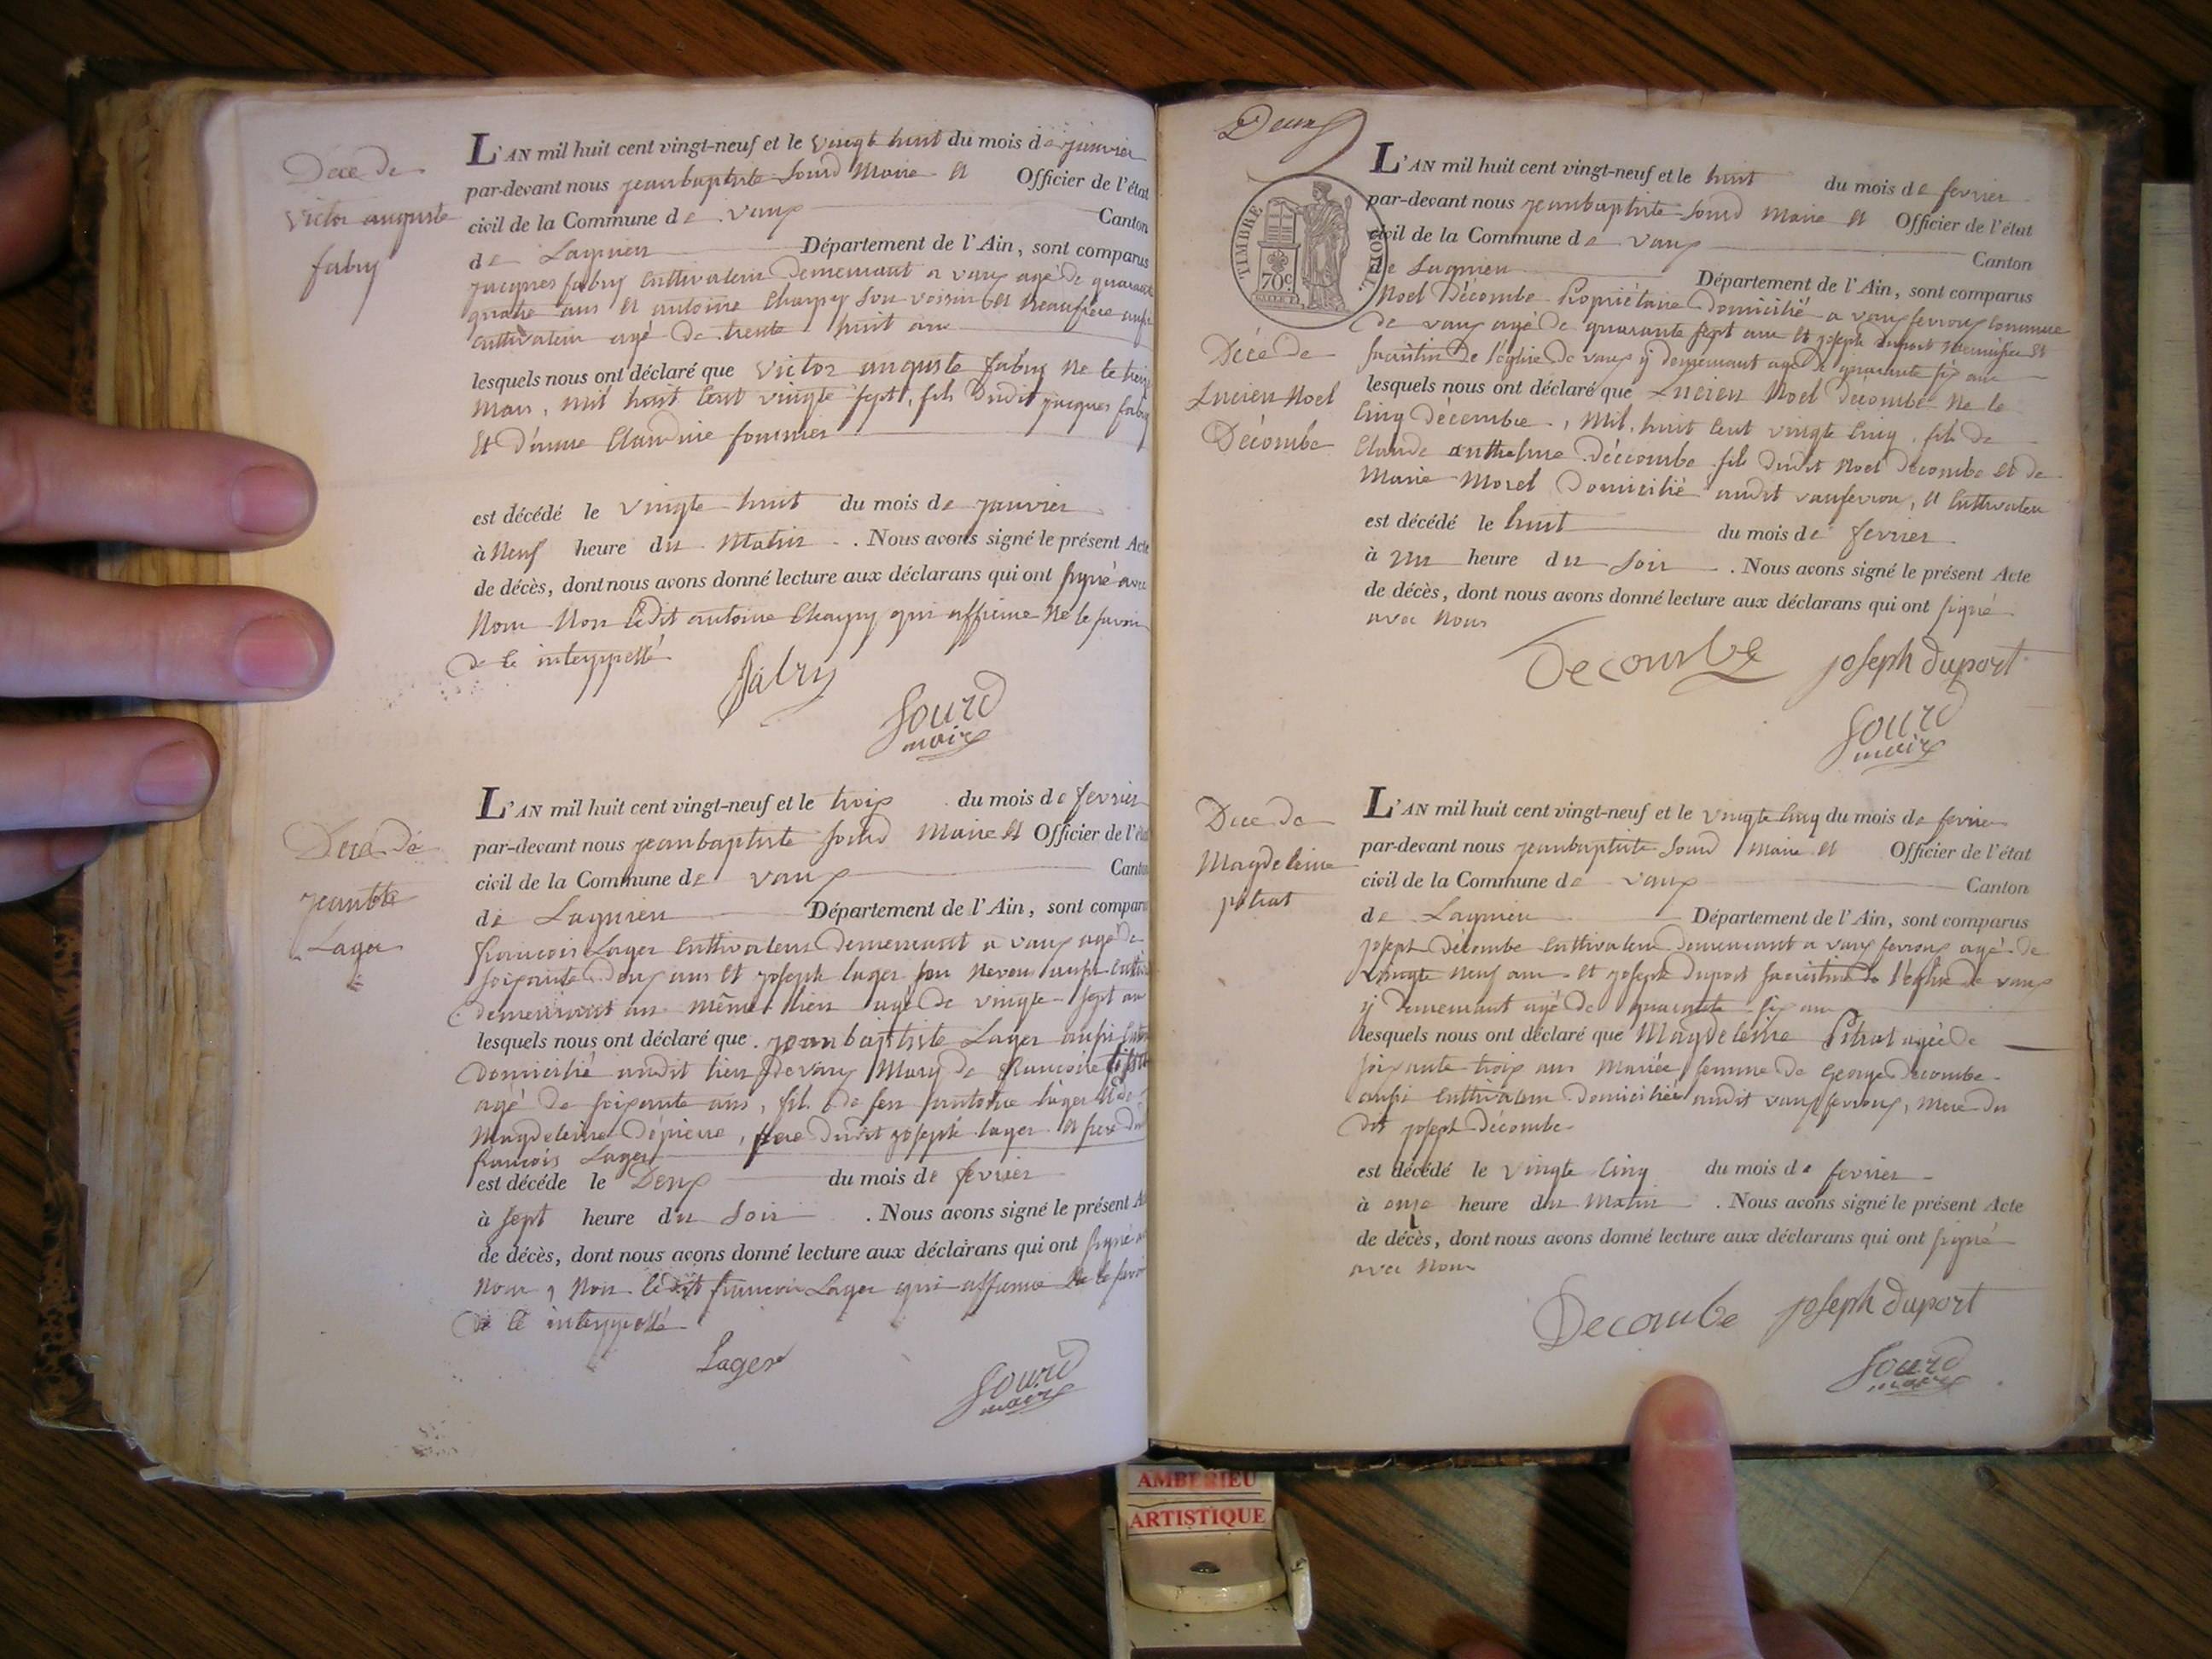 Décé de
Victor auguste
fabry
L'AN mil huit cent vingt-neuf et le vingt huit du mois de janvier
par-devant nous jeanbaptiste Sourd Maire et Officier de l'état
civil de la Commune de vaux Canton
de Lagnieu Département de l'Ain, sont comparus
jacques fabry Cultivateur Demeurant a vaux agé de quarante
quatre ans et antoine Charpy son voisin et beaufrère aussi
Cultivateur agé de trente huit ans
lesquels nous ont déclaré que Victor auguste fabry né le treize
Mars, mil huit Cent vingte sept, fils dudit jacques fabry
Et d'anne Claudine fournier
est décédé le vingte huit du mois de janvier
à Neuf heure du Matin. Nous avons signé le présent Acte
de décès, dont nous avons donné lecture aux déclarans qui ont signé avec
Nous Non ledit antoine Charpy qui affirme Ne le savoir
de ce interppellé
fabry
Sourd
maire
Décé de
jeanbte
Lager
L'AN mil huit cent vingt-neuf et le trois du mois de fevrier
par-devant nous jeanbaptiste Sourd Maire et Officier de l'état
civil de la Commune de vaux Canton
de Lagnieu Département de l'Ain, sont comparus
francois Lager Cultivateur Demeurant a vaux agé de
soixante Deux ans et joseph lager son Neveu aussi Cultiv
demeurant au même lieu agé de vingte sept an
lesquels nous ont déclaré que jeanbaptiste Lager aussi
Domicilié audit lieu de vaux Mary de francoise
agé de soixante ans, fils de feu antoine lager et de
Magdeleine Dépierre, pere dudit joseph lager et frere du
francois Lager
est décédé le Deux du mois de fevrier
à sept heure du Soir. Nous avons signé le présent Ac
de décès, dont nous avons donné lecture aux déclarans qui ont signé
Nous, Non ledit francois Lager qui affirme Ne le savoir
de ce interppellé
Lager
Sourd
maire
Deux
TIMBRE ROYAL
70c
L'AN mil huit cent vingt-neuf et le huit du mois de fevrier
par-devant nous jeanbaptiste Sourd Maire et Officier de l'état
civil de la Commune de vaux Canton
de Lagnieu Département de l'Ain, sont comparus
Noel Décombe Propriétaire Domicilié a vauxfevroux Commune
de vaux agé de quarante sept ans et joseph duport Menuisier et
sacristin de l'église de vaux y demeurant agé de quarante six ans
Décé de
Lucien Noel
Décombe
lesquels nous ont déclaré que Lucien Noel décombe Né le
Cinq décembre, Mil huit Cent vingte Cinq fils de
Claude anthelme déccombe fils dudit Noel décombe et de
Marie Morel Domicilié audit vauxfevroux, et Cultivateur
est décédé le huit du mois de fevrier
à un heure du Soir. Nous avons signé le présent Acte
de décès, dont nous avons donné lecture aux déclarans qui ont signé
avec Nous
Decombe joseph duport
Sourd
maire
Décé de
Magdeleine
pitrat
L'AN mil huit cent vingt-neuf et le vingte Cinq du mois de fevrier
par-devant nous jeanbaptiste Sourd Maire et Officier de l'état
civil de la Commune de vaux Canton
de Lagnieu Département de l'Ain, sont comparus
joseph décombe Cultivateur Demeurant a vaux fevroux agé de
vingte Neuf ans et joseph duport sacristin de l'église de vaux
y demeurant agé de quarante six ans
lesquels nous ont déclaré que Magdeleine Pitrat agée de
soixante trois ans Mariée femme de George décombe
aussi Cultivateur Domiciliée audit vaux fevroux, Mere du
dit joseph décombe
est décédé le vingte Cinq du mois de fevrier
à onze heure du Matin. Nous avons signé le présent Acte
de décès, dont nous avons donné lecture aux déclarans qui ont signé
avec Nous
Decombe joseph duport
Sourd
maire
AMBERIEU
ARTISTIQUE